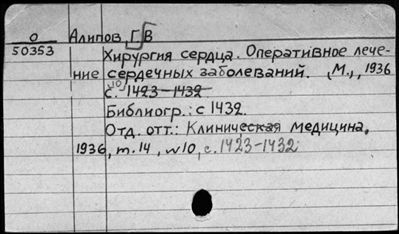 О Алипов, Г. В
50353 Хирургия сердца. Оперативное лече-
ние сердечных заболеваний. (М.), 1936
с. 1423-1432
Библиогр.: с 1432.
Отд. отт.: Клиническая медицина,
1936, т. 14, №10, с. 1423-1432